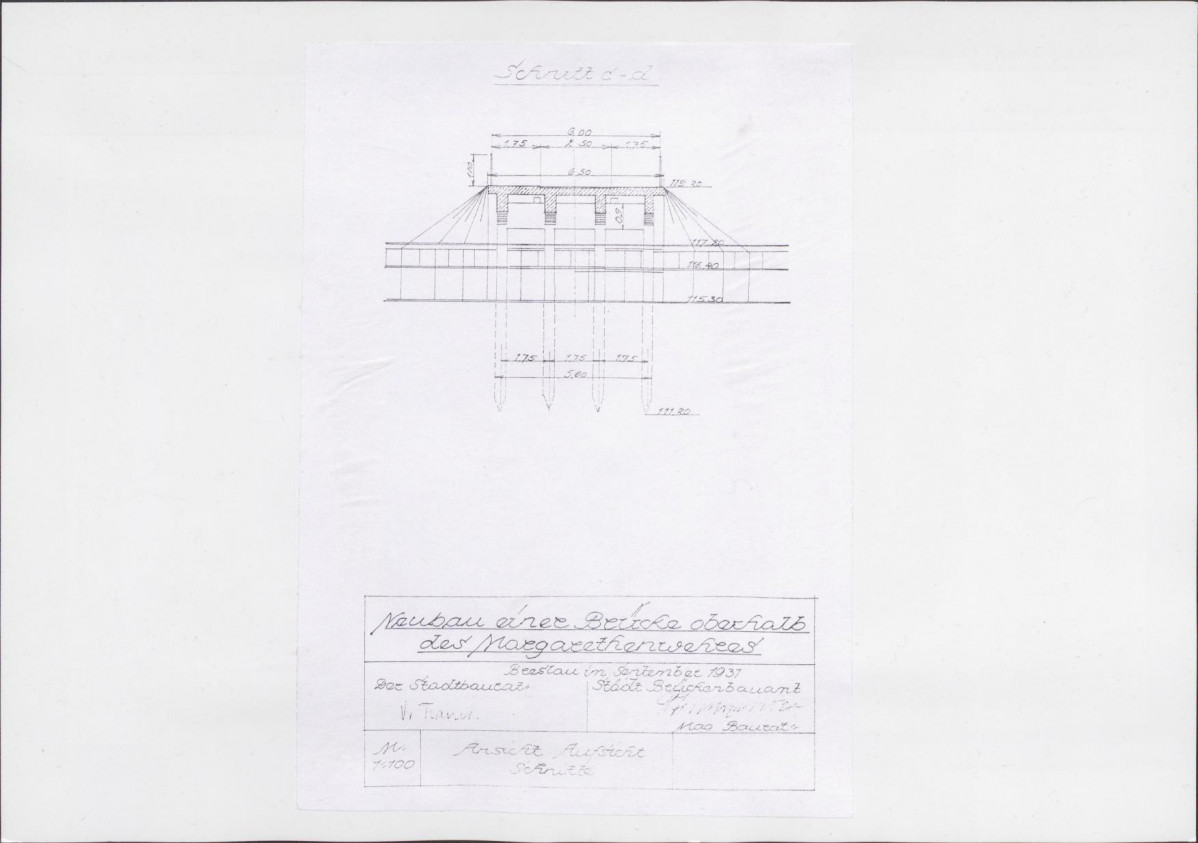 Schnitt c-d
6.00
1.75 2.50 1.75
1.00
6.50
119.20
0.9
117.20
116.40
115.30
1.75 1.75 1.75
5.60
111.20
Neubau einer Brücke oberhalb
des Margarethenwehres
Breslau im September 1931
Der Stadtbaurat.
Städt Brückenbauamt
Mag Baurat.
M.
1:100
Ansicht Aufsicht
Schnitte